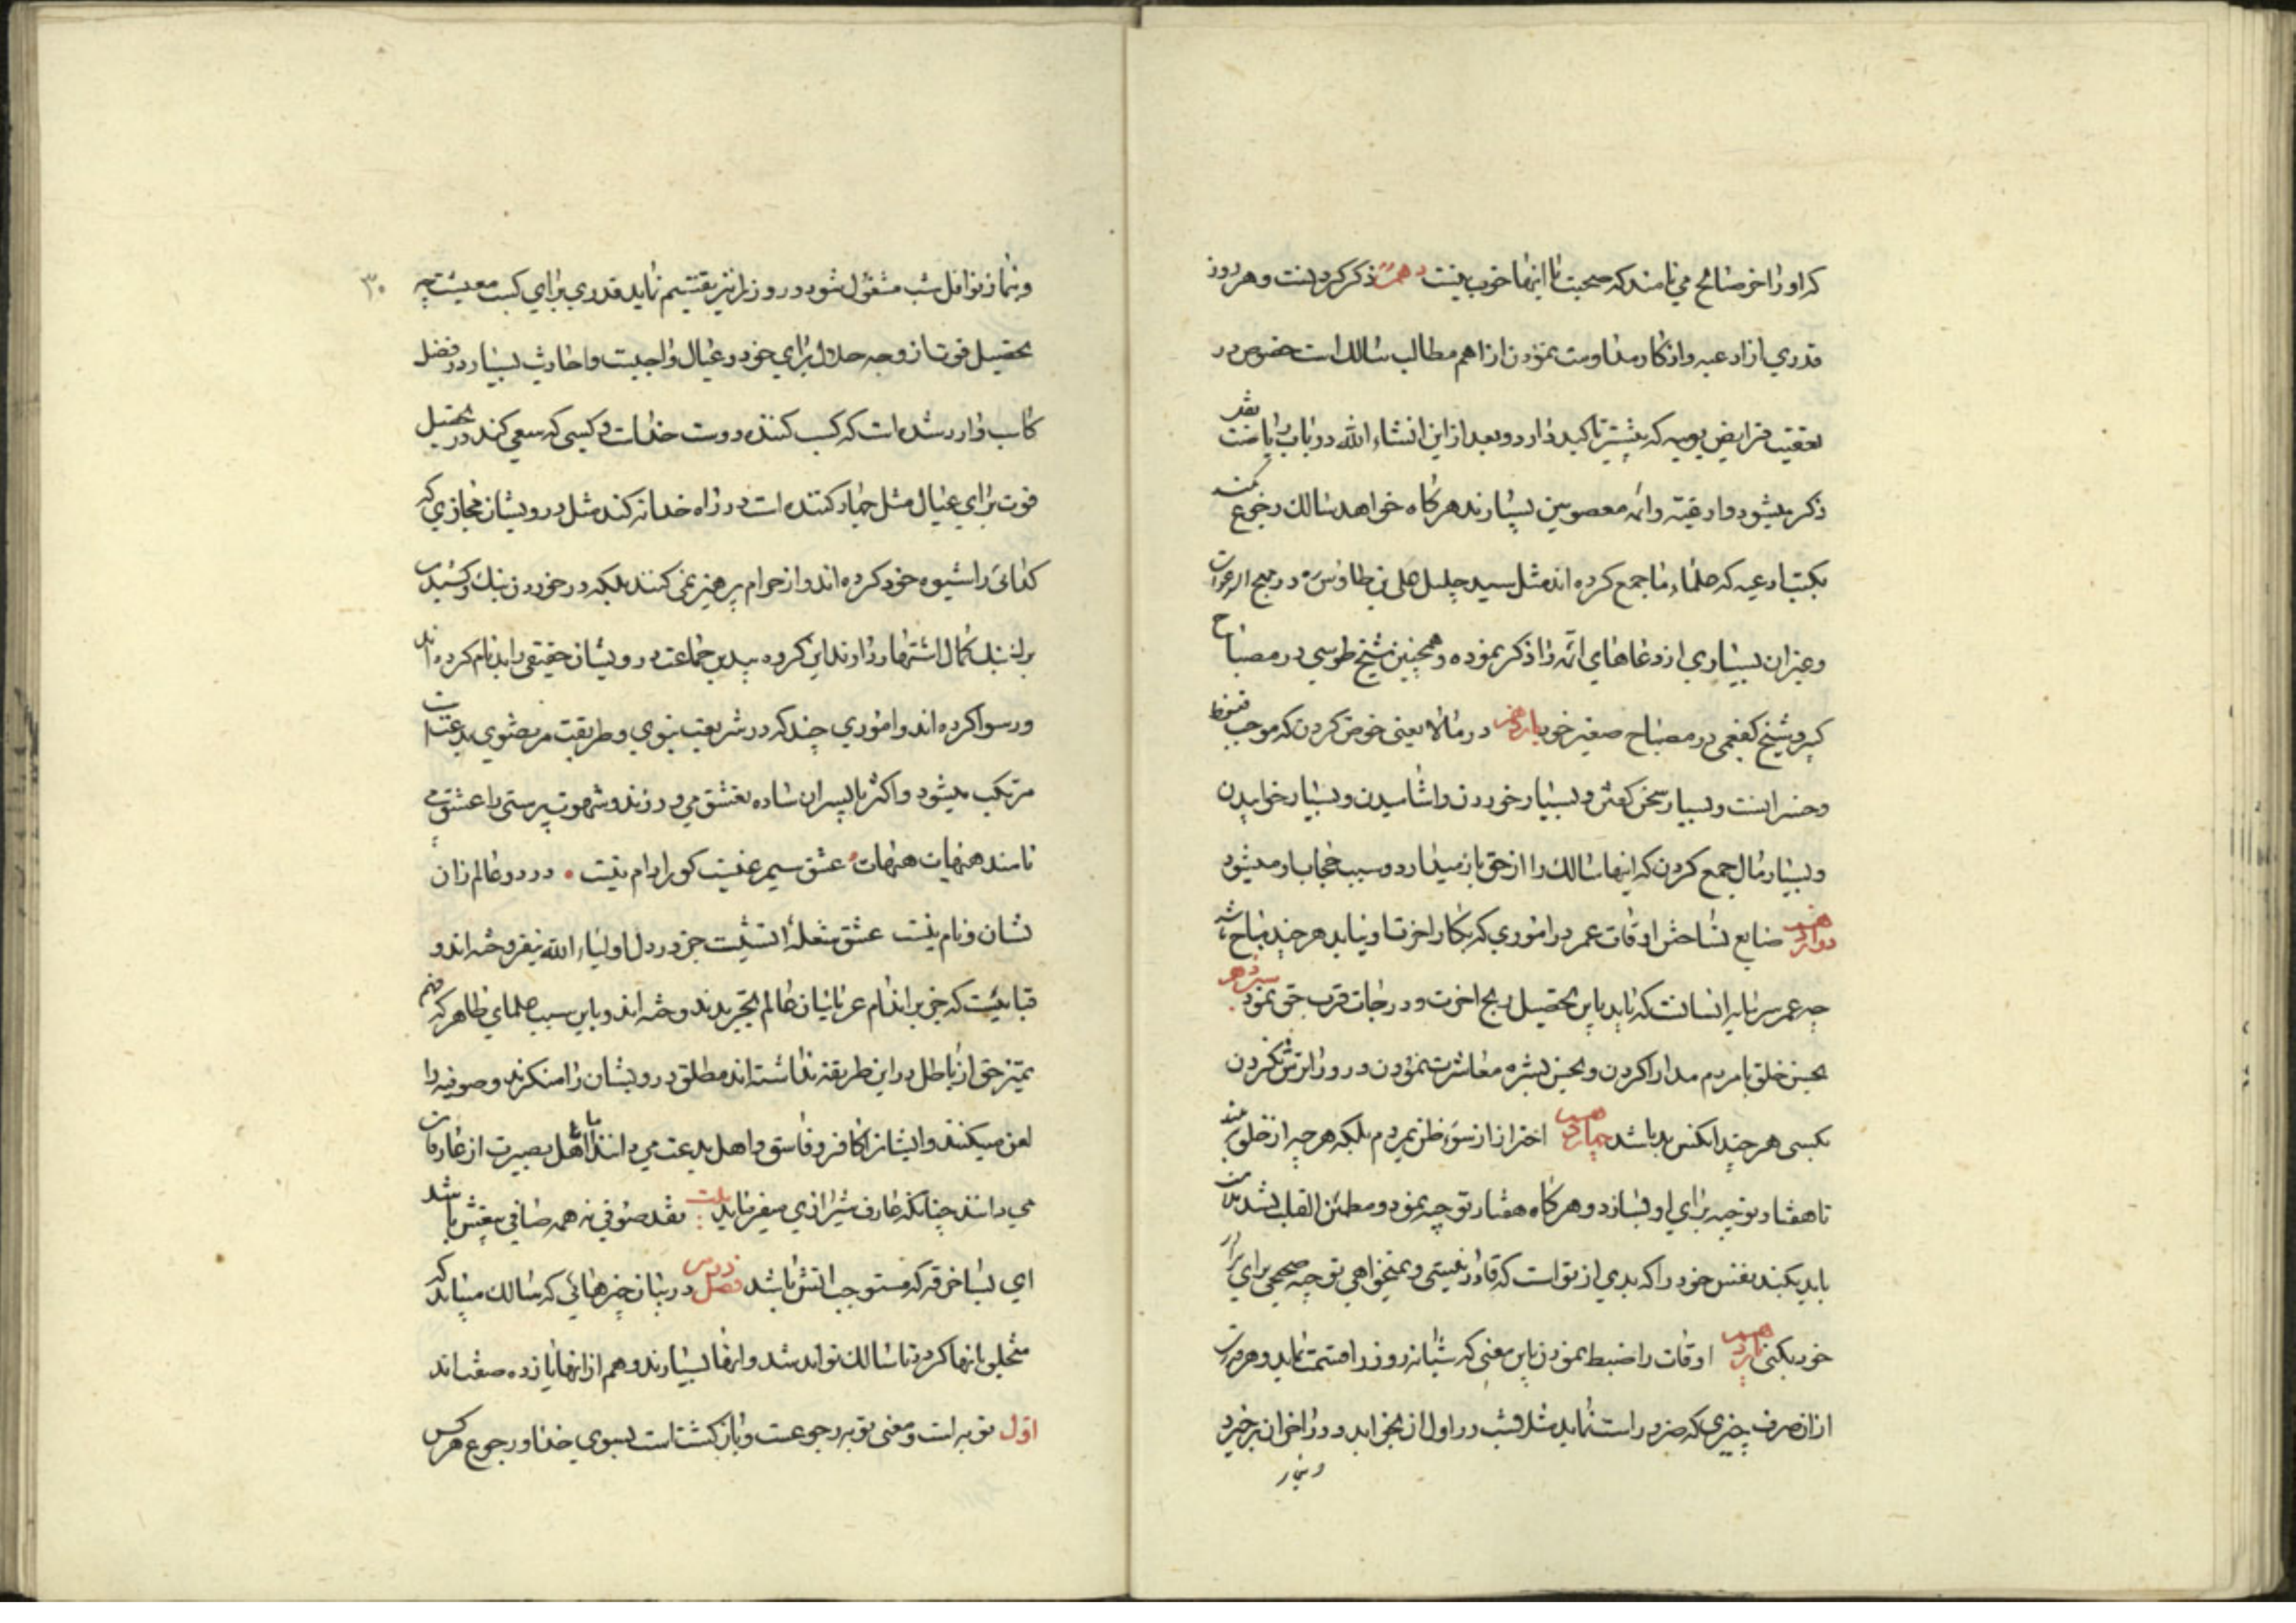 که او را خر صالح می نامند که صحبت با اینها خوب نیست دهم ذکر کردنست و هر روز
قدری از ادعیه و اذکار مداومت نمودن از اهم مطالب سالک است خصوص در
تعقیب فرایض یومیه که بیشتر تاکید دارد و بعد از این انشاء الله در باب ریاضت
ذکر میشود و ادعیه وائمه معصومین بسیارند هرگاه خواهد سالک رجوع کند
بکتب ادعیه که علماء ما جمع کرده اند مثل سید جلیل علی بن طاوس ره در مهج الدعوات
وغیر ان بسیاری از دعاهای ائمه را ذکر نموده و همچنین شیخ طوسی در مصباح
کبیر و شیخ کفعمی در مصباح صغیر خود یازدهم در مالا یعنی خوض کردن که موجب
و خسرانست و بسیار سخن گفتن و بسیار خوردن و اشامیدن و بسیار خوابیدن
و بسیار مال جمع کردن که اینها سالک را از حق باز میدارد و سبب حجاب او میشود
دوازدهم ضایع نساختن اوقات عمر در اموری که بکار اخرت او نیاید هر چند مباح باشد
چه عمر سرمایه انسانست که باید باین تحصیل ربح اخرت و درجات قرب حق نمود سیزدهم
بحسن خلق با مردم مدارا کردن و بحسن بشره معاشرت نمودن و رو را ترش نکردن
بکسی هر چند انکس بد باشد چهاردهم احتراز از سوء ظن بمردم بلکه هر چه از خلق بیند
تا هفتاد توجیه برای او بسازد و هرگاه هفتاد توجیه نمود و مطمئن القلب نشد ملامت
باید بکند نفس خود را که بدی از تو است که قادر نیستی و نمیخواهی توجیه صحیحی برای برادر
خود بکنی پانزدهم اوقات را ضبط نمودن باین معنی که شبانه روز را قسمت نماید و هر قدری
از انرا صرف چیزی که ضرور است نماید مثلا شب در اول ان بخوابد و در اخر ان برخیزد
و بنماز
۳۰
و بنماز نوافل شب مشغول شود و روز را نیز تقسیم نماید قدری برای کسب معیشت چه
تحصیل قوت از وجه حلال برای خود و عیال واجبست و احادیث بسیار در فضل
کاسب وارد شده است که کسب کننده دوست خداست و کسی که سعی کند در تحصیل
قوت برای عیال مثل جهاد کننده است در راه خدا نه کند مثل درویشان مجازی که
گدائی را شیوه خود کرده اند و از حرام پرهیز نمی کنند بلکه در خوردن بنک و کشیدن
بنک کمال اشتهار دارند این گروه بیدین جماعت درویشان حقیقی را بدنام کرده اند
و رسوا کرده اند و اموری چند که در شریعت نبوی و طریقت مرتضوی بدعت است
مرتکب میشود و اکثر با پسران ساده تعشق می ورزند و شهوت پرستی را عشق می
نامند هیهات هیهات عشق سیمرغیست کو را دام نیست در دو عالم زان
نشان و نام نیست عشق شعله اتشیست جز در دل اولیاء الله نیفروخته اند و
قبائیست که جز بر اندام عریانیان عالم تجرید ندوخته اند و باین سبب علمای ظاهر که فهم
تمیز حق از باطل در این طریقه نداشته اند مطلق درویشان را منکرند و صوفیه را
لعن میکنند و ایشانرا کافر و فاسق و اهل بدعت می دانند اما اهل بصیرت از عارفان
می دانند چنانکه عارف شیرازی میفرماید بیت نقد صوفی نه همه صافی بیغش باشد
ای بسا خرقه که مستوجب اتش باشد فصل دویم در بیان چیزهائی که سالک میباید که
متخلق بانها گردد تا سالک تواند شد و انها بسیارند و هم از انها یازده صفت اند
اوّل توبه است و معنی توبه رجوعست و بازگشت است بسوی خدا و رجوع هر کس